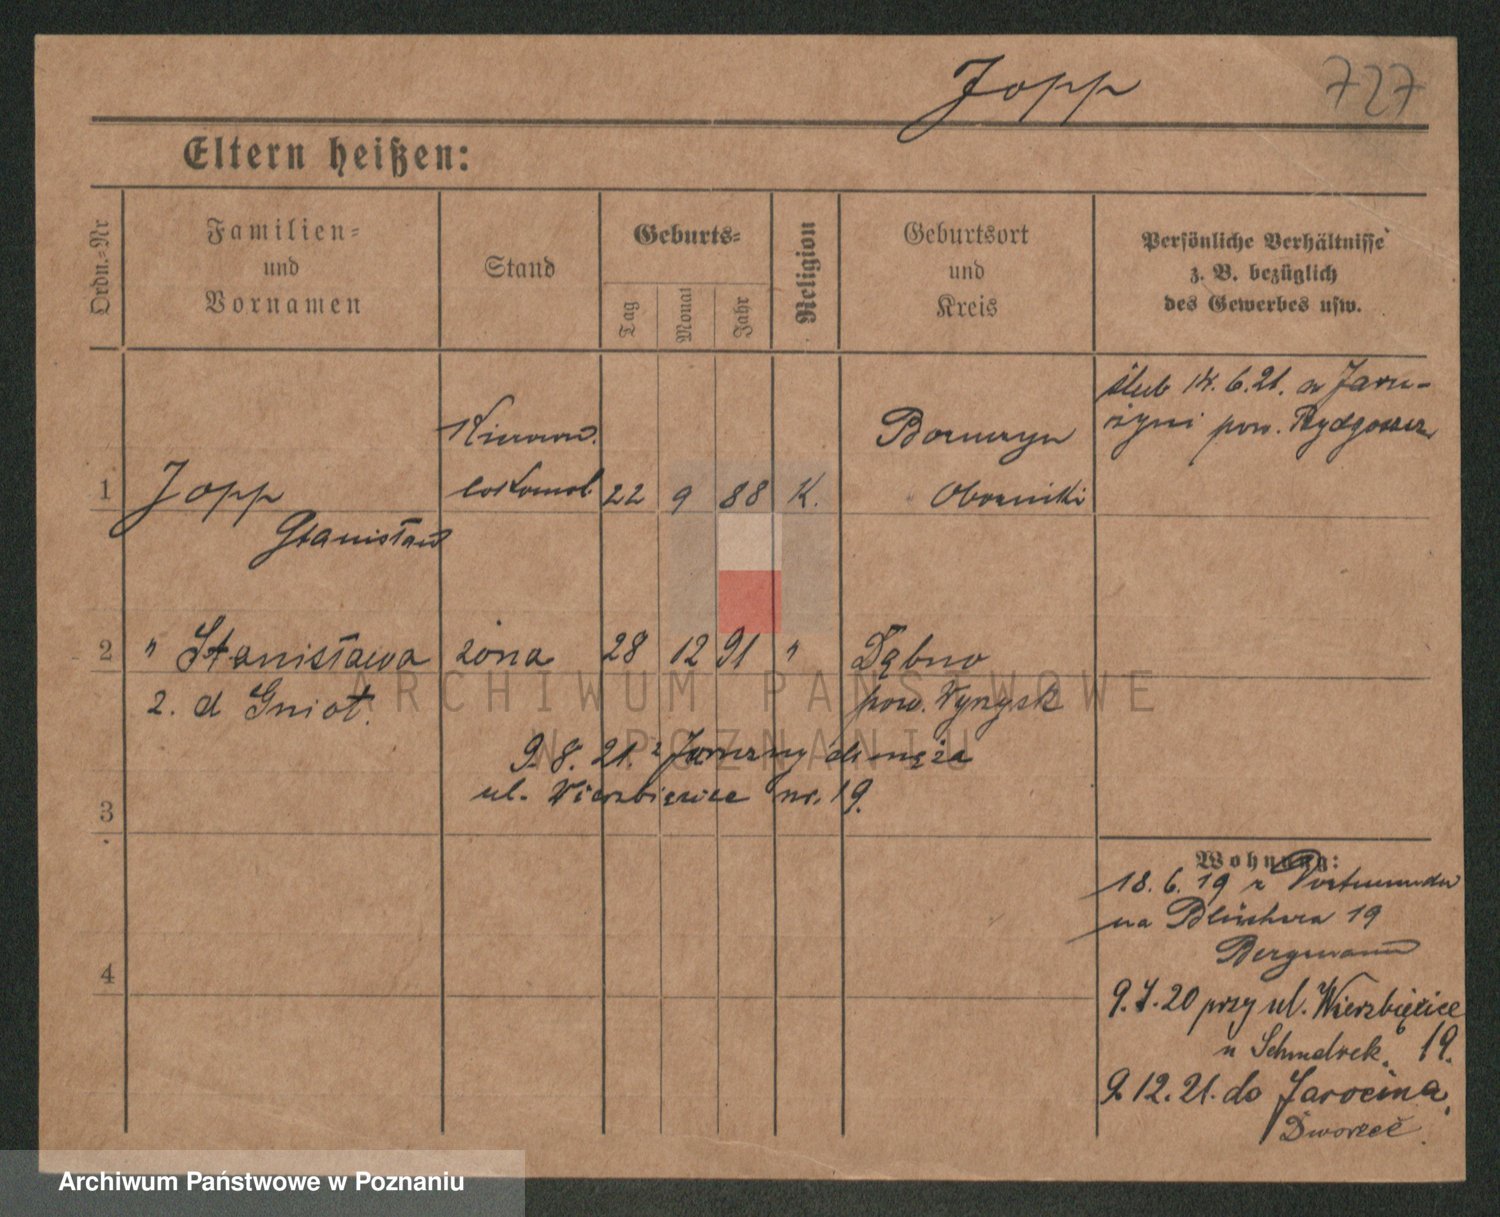 Jopp 727
Eltern heißen:
Ordn.=Nr
Familien=
und
Vornamen
Stand
Geburts=
Tag
Monat
Jahr
Religion
Geburtsort
und
Kreis
Persönliche Verhältnisse
z. B. bezüglich
des Gewerbes usw.
ślub 14.6.21. w Jaru-
żyni pow. Bydgoszcz
1 Jopp
Stanisław
22 9 88 K.
Oborniki
2 " Stanisława żona 28 12 91 " Dąbno
2. d Gniot. pow. Wyrzysk
9.8.21. z Jaruzyny do męża
ul. Wierzbięcice nr. 19.
3
4
Wohnung:
18.6.19 z
na Blüchera 19
Bergmann
9.7.20 przy ul. Wierzbięcice
u 19.
9.12.21. do Jarocina,
Dworzec.
ARCHIWUM PAŃSTWOWE
W POZNANIU
Archiwum Państwowe w Poznaniu